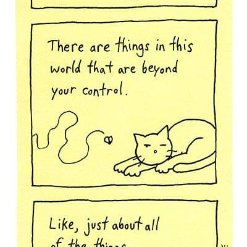 There are things in this
world that are beyond
your control.
Like, just about all
of the things